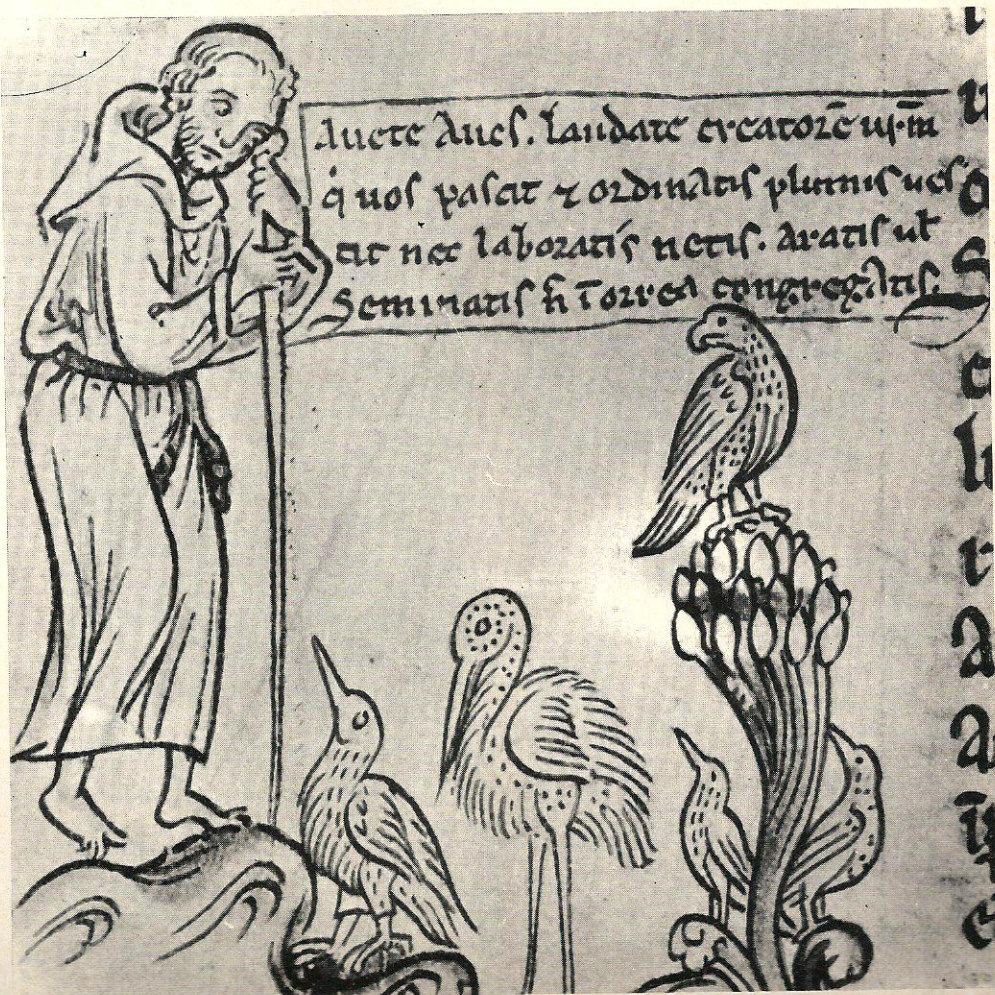 Auete Aues. laudate creatorē ur̄m
q̇ uos pascit ⁊ ordinatis plumis ues
tit nec laboratis netis. Aratis ul̄
Seminatis ñ ī orrea congregatis.